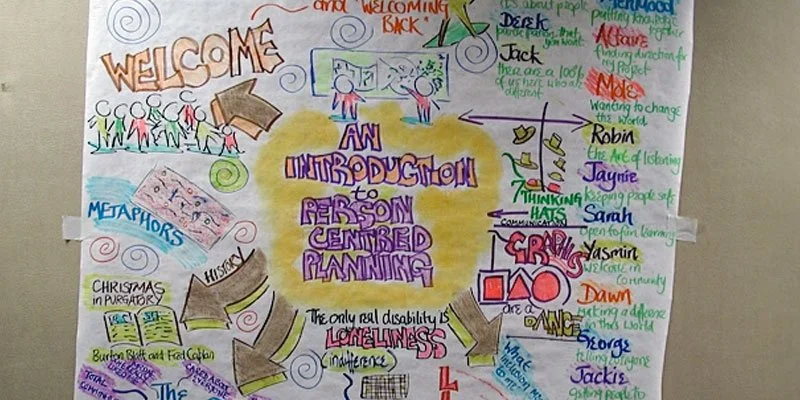 and "WELCOMING
BACK"
WELCOME
METAPHORS
HISTORY
CHRISTMAS
in PURGATORY
Burton Blatt and Fred Caplan
TOTAL
The
AN
INTRODUCTION
to
PERSON
CENTRED
PLANNING
The only real disability is
LONELINESS
indifference
7 THINKING
HATS
COMMUNICATION
GRAPHICS
are a
DANCE
What
it's about people
Derek
Jack
there are a 100% of
us here who are
different
putting knowledge
together
finding direction for
my Project
Mole
Wanting to change
the world
Robin
the Art of listening
Jaynie
Keeping people safe
Sarah
Open to fun learning
Yasmin
Welcome in
Community
Dawn
Making a difference
in this World
George
telling everyone
Jackie
getting people to